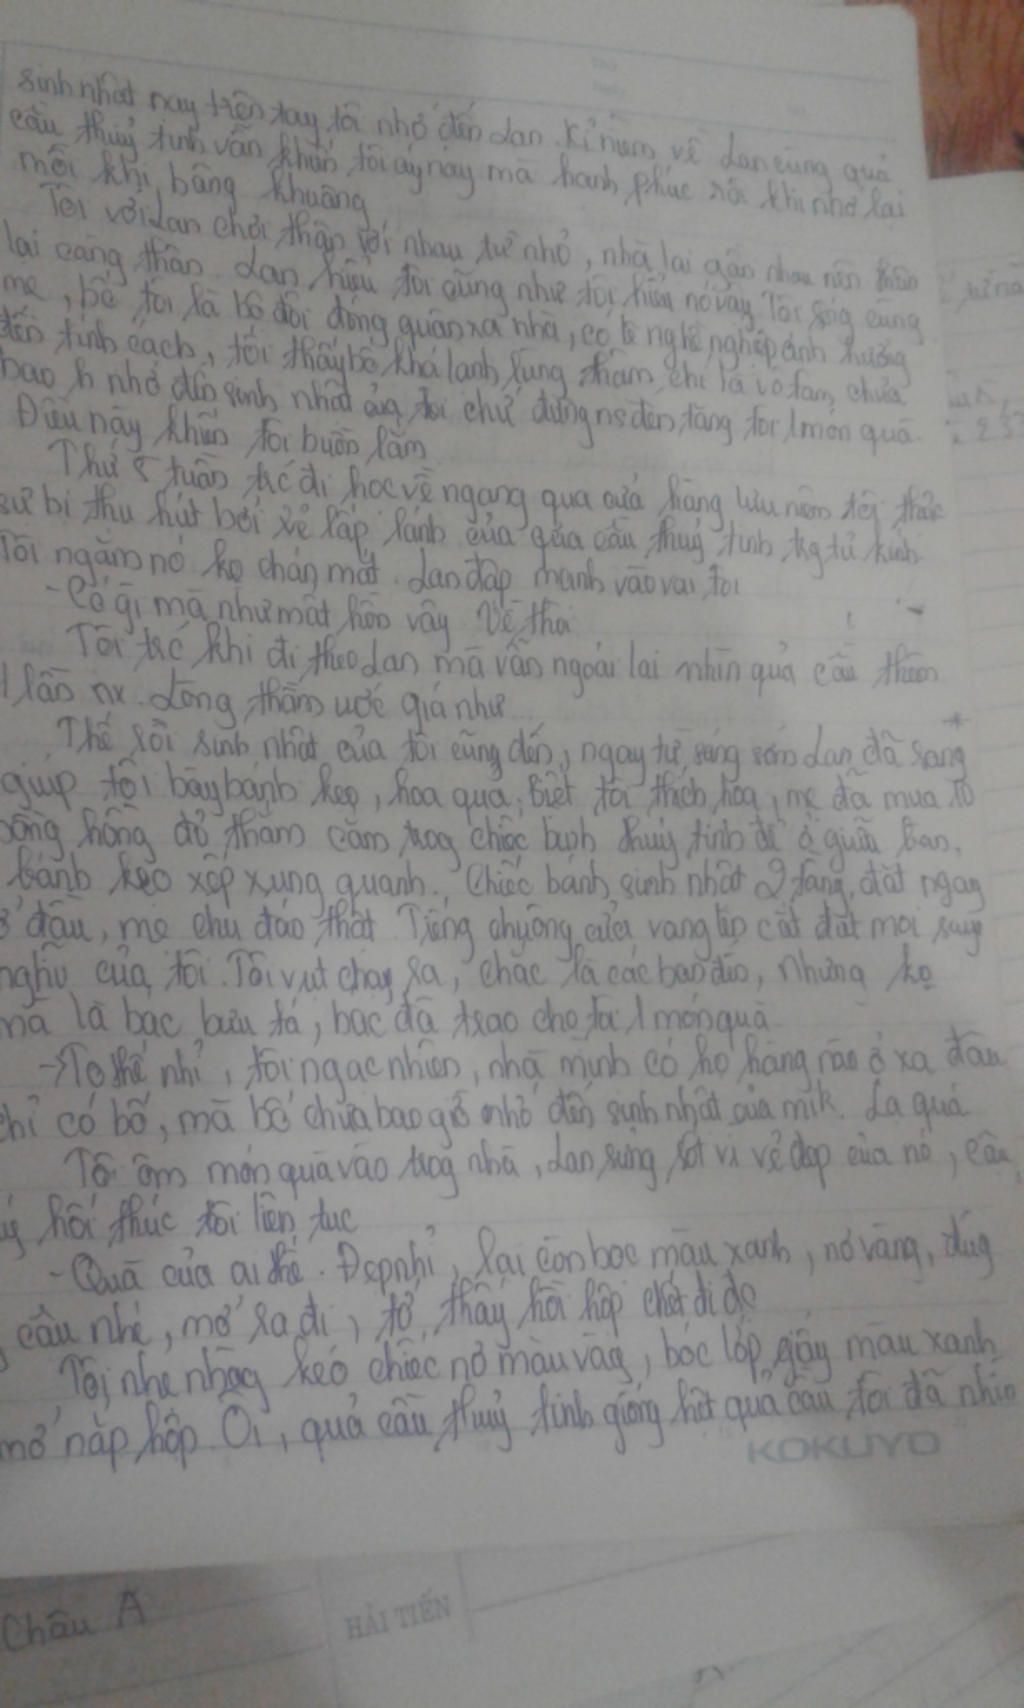 sinh nhật nay trên tay tôi nhớ đến Lan. Kỉ niệm về Lan cùng quả
cầu thuỷ tinh vẫn khiến tôi áy náy mà hạnh phúc rồi khi nhớ lại
mỗi khi bâng khuâng
Tôi với Lan chơi thân với nhau từ nhỏ, nhà lại gần nhau nên
lại càng thân. Lan hiểu tôi cũng như tôi hiểu nó vậy. Tôi sống cùng
mẹ, bố tôi là bộ đội đóng quân xa nhà, có lẽ nghề nghiệp ảnh hưởng
đến tính cách, tôi thấy bố khá lạnh lùng thậm chí là vô tâm, chưa
bao h nhớ đến sinh nhật của tôi chứ đừng ns đến tặng tôi 1 món quà.
Điều này khiến tôi buồn lắm
Thứ 5 tuần trc đi học về ngang qua cửa hàng lưu niệm tôi thực
sự bị thu hút bởi vẻ lấp lánh của quả cầu thuỷ tinh trg tủ kính
Tôi ngắm nó ko chán mắt. Lan đập mạnh vào vai tôi
- Có gì mà như mất hồn vậy. Về thôi
Tôi trc khi đi theo Lan mà vẫn ngoái lại nhìn quả cầu thêm
1 lần nx. Lòng thầm ước giá như...
Thế rồi sinh nhật của tôi cũng đến, ngay từ sáng sớm Lan đã sang
giúp tôi bày bánh kẹo, hoa quả. Biết tôi thích hoa, mẹ đã mua 10
bông hồng đỏ thắm cắm trog chiếc bình thuỷ tinh để ở giữa bàn,
bánh kẹo xếp xung quanh. Chiếc bánh sinh nhật 2 tầng đặt ngay
ở đầu, mẹ chu đáo thật. Tiếng chuông cửa vang lên cắt đứt mọi suy
nghĩ của tôi. Tôi vụt chạy ra, chắc là các bạn đến, nhưng ko
mà là bác bưu tá, bác đã trao cho tôi 1 món quà
→ Tò thế nhỉ, tôi ngạc nhiên, nhà mình có họ hàng nào ở xa đâu
chỉ có bố, mà bố chưa bao giờ nhớ đến sinh nhật của mik. Lạ quá
Tô ôm món quà vào trog nhà, Lan sửng sốt vì vẻ đẹp của nó, cậu
ấy hối thúc tôi liên tục
- Quà của ai thế. Đẹp nhỉ, lại còn bọc màu xanh, nơ vàng, đúg
cầu nhé, mở ra đi, tớ thấy hồi hộp chết đi đc
Tôi nhẹ nhàng kéo chiếc nơ màu vàg, bóc lớp giấy màu xanh
mở nắp hộp. Ôi, quả cầu thuỷ tinh giống hệt quả cầu tôi đã nhìn
KOKUYO
Châu Á
HẢI TIẾN